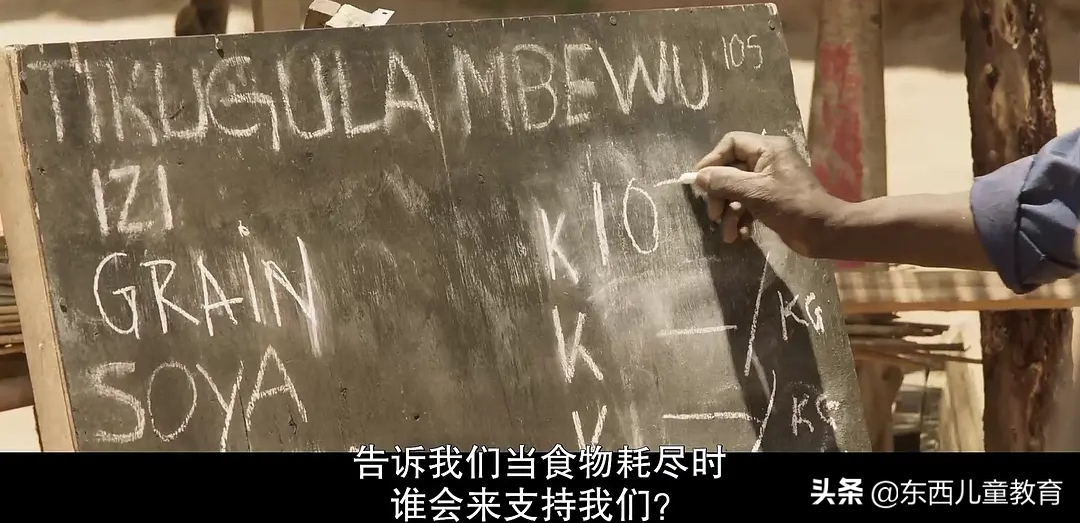 TIKUGULA MBEWU 105
IZI
GRAIN K 10
SOYA K — /KG
K — /KG
告诉我们当食物耗尽时
谁会来支持我们?
头条 @东西儿童教育